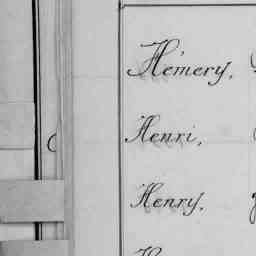 Hémery,
Henri,
Henry,